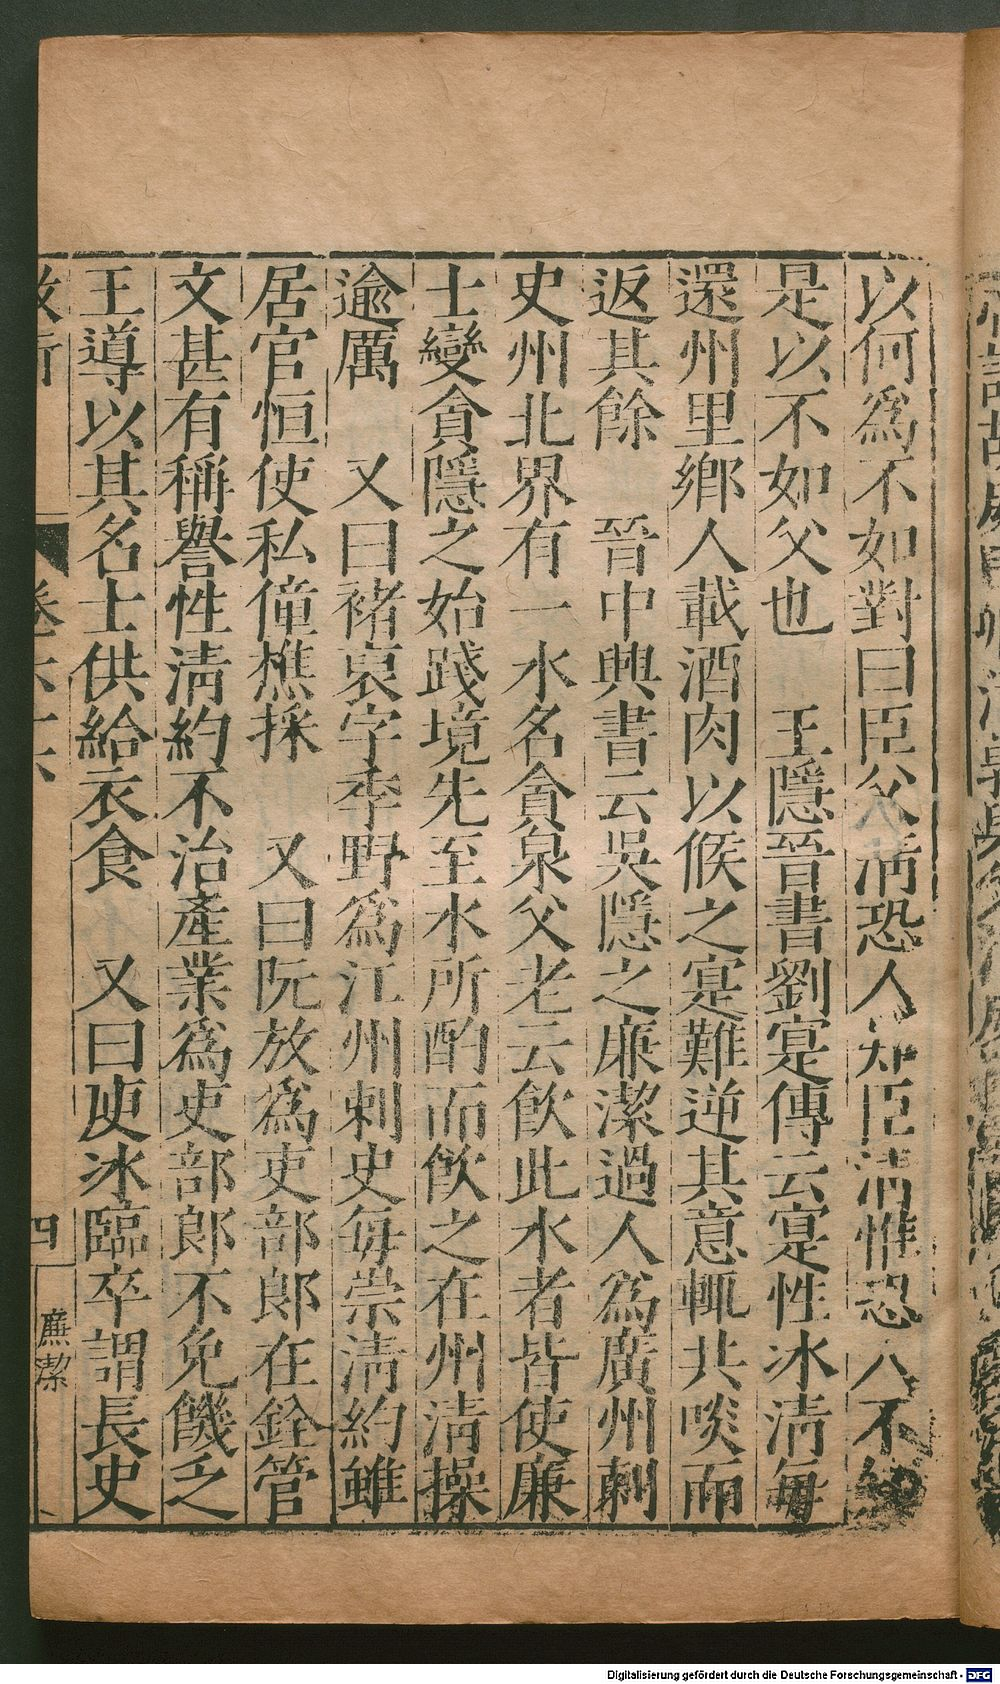 以何爲不如對曰臣父淸恐人知臣淸惟恐人不知
是以不如父也　王隱晉書劉寔傳云寔性冰淸每
還州里鄉人載酒肉以候之寔難逆其意輒共啖而
返其餘　晉中興書云吳隱之廉潔過人爲廣州刺
史州北界有一水名貪泉父老云飮此水者皆使廉
士變貪隱之始踐境先至水所酌而飮之在州淸操
逾厲　又曰褚裒字季野爲江州刺史每崇淸約雖
居官恒使私僮樵採　又曰阮放爲吏部郎在銓管
文甚有稱譽性淸約不治產業爲吏部郎不免饑乏
王導以其名士供給衣食　又曰庾冰臨卒謂長史
卷六十六
四
廉潔
Digitalisierung gefördert durch die Deutsche Forschungsgemeinschaft - DFG